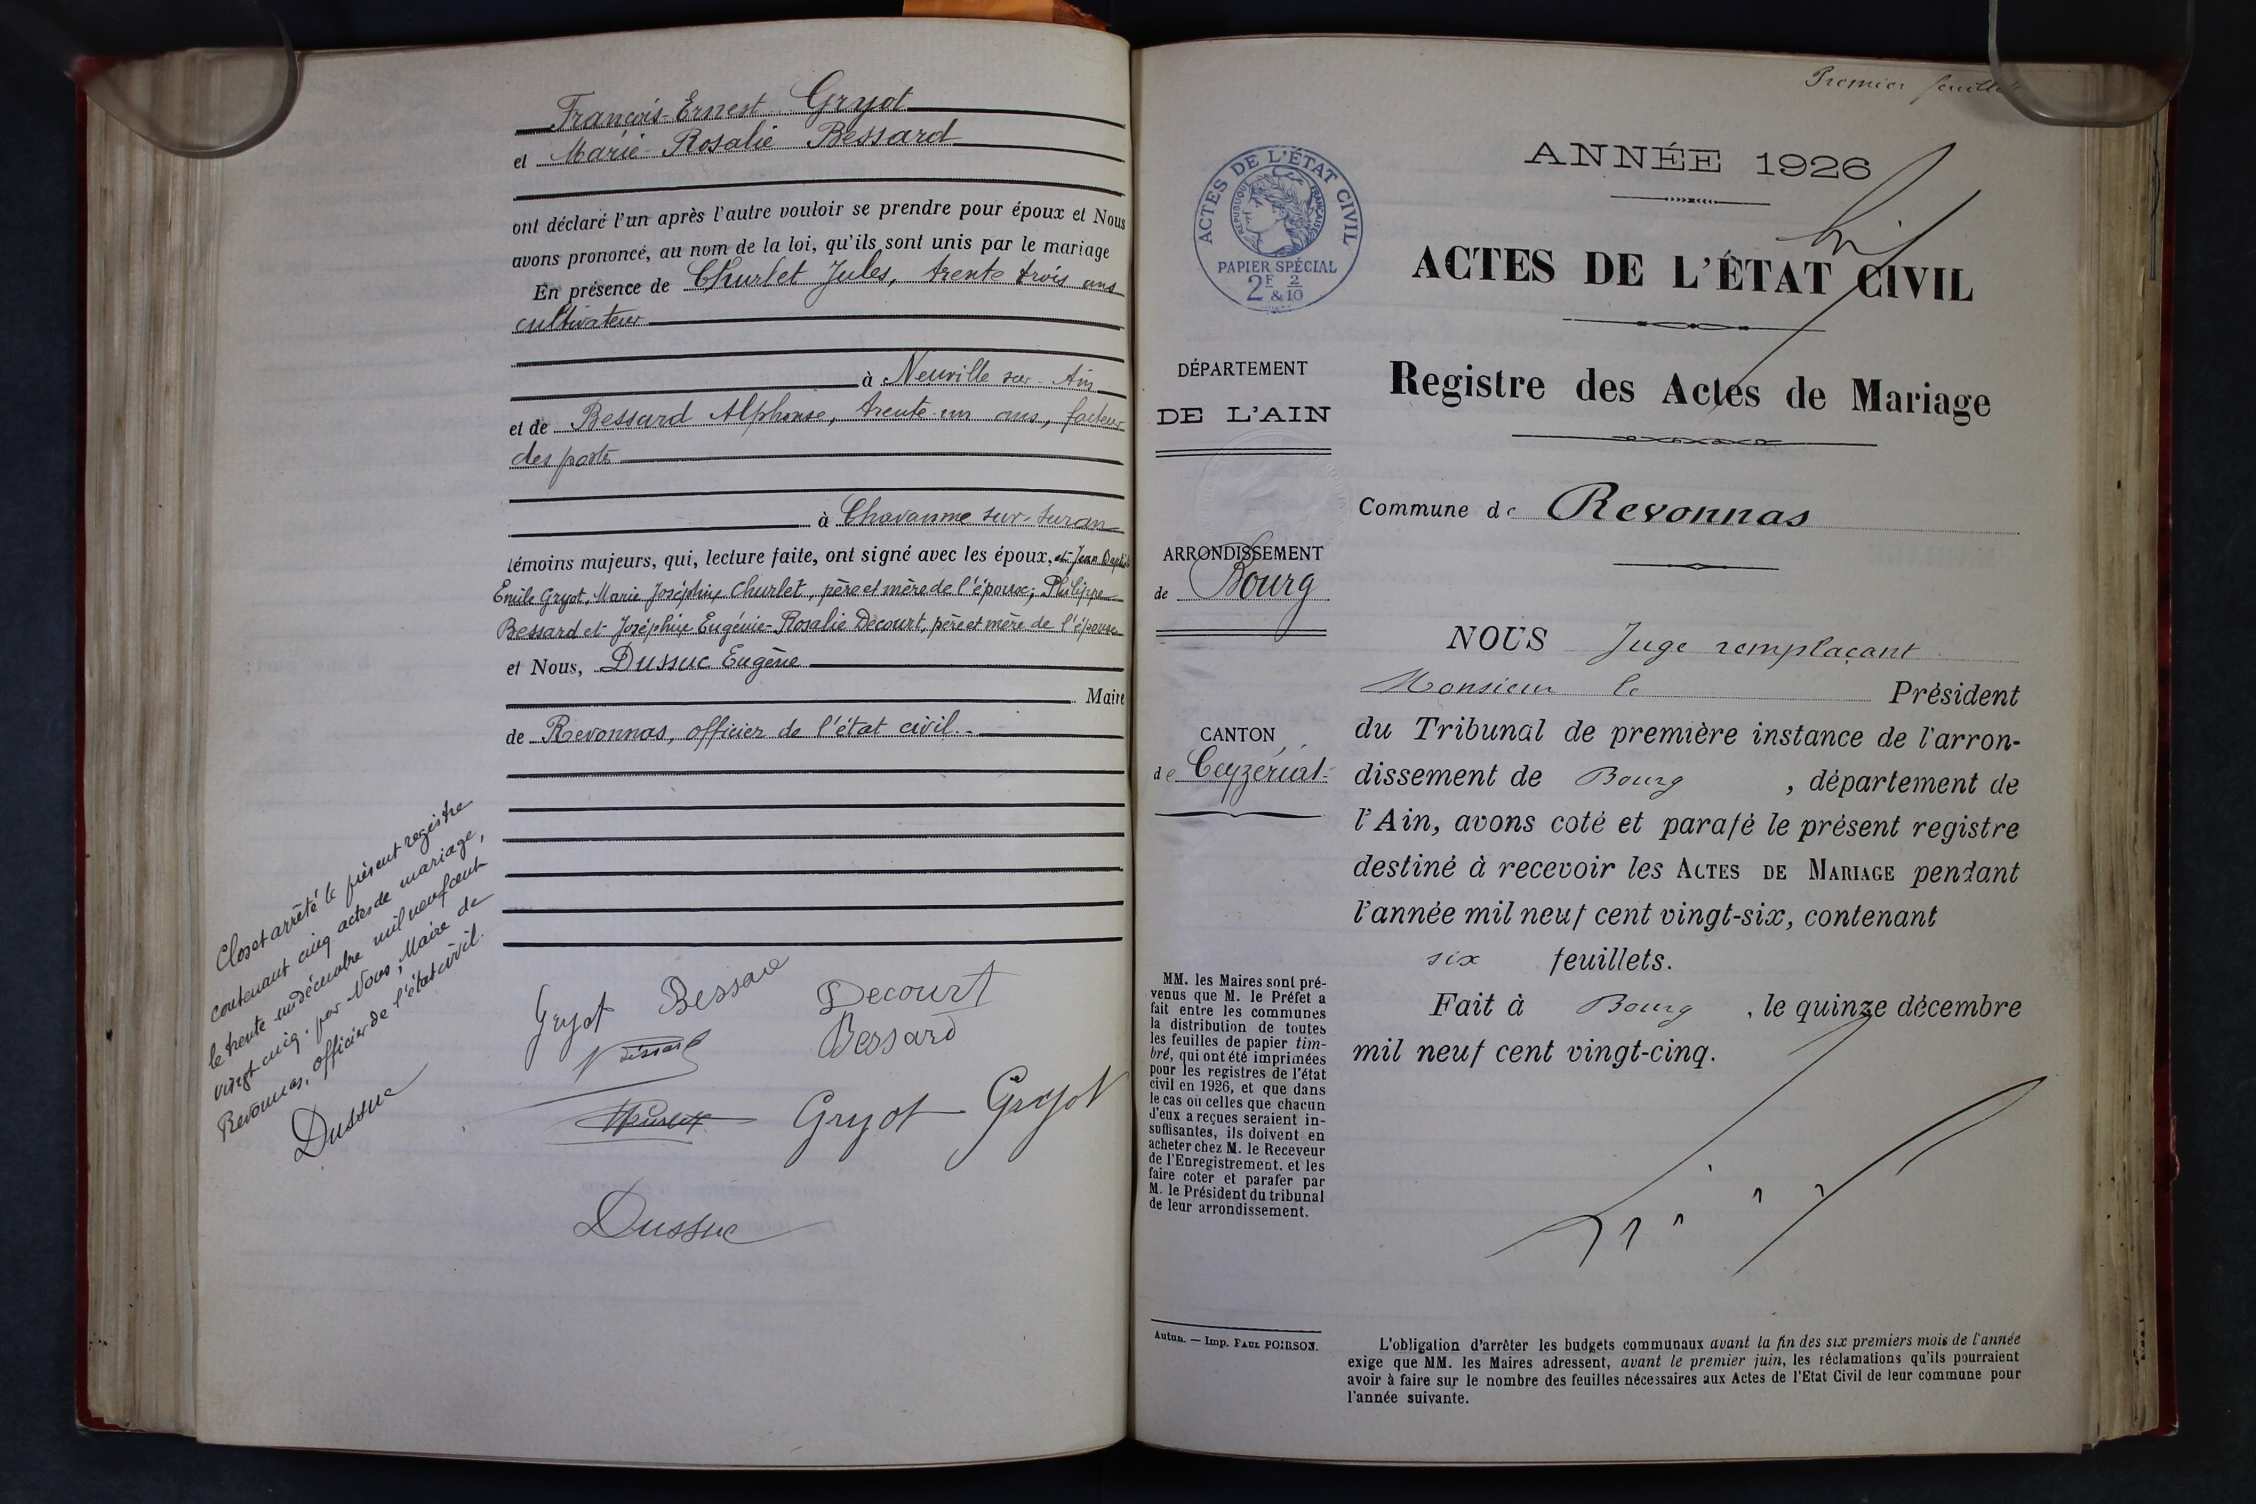 François-Ernest Gryot
et Marie-Rosalie Bessard
ont déclaré l'un après l'autre vouloir se prendre pour époux et Nous
avons prononcé, au nom de la loi, qu'ils sont unis par le mariage
En présence de Churlet Jules, trente trois ans
cultivateur
à Neuville sur-Ain
et de Bessard Alphonse, trente-un ans, facteur
des postes
à Chavanne sur-Suran
témoins majeurs, qui, lecture faite, ont signé avec les époux, et Jean Baptiste
Emile Gryot, Marie Joséphine Churlet, père et mère de l'épouse; Philippe
Bessard et Joséphine Eugénie-Rosalie Décourt, père et mère de l'épouse
et Nous, Dussuc Eugène
Maire
de Revonnas, officier de l'état civil.-
Clos et arrêté le présent registre
contenant cinq actes de mariage,
le trente un décembre mil neuf cent
vingt-cinq. par Nous, Maire de
Revonnas, officier de l'état civil.
Dussuc
Gryot Bessard Decourt
Bessard
Bessard
Churlet Gryot Gryot
Dussuc
Premier feuillet
ANNÉE 1926
ACTES DE L'ÉTAT CIVIL
RÉPUBLIQUE FRANÇAISE
PAPIER SPÉCIAL
2F & 2/10
ACTES DE L'ÉTAT CIVIL
Registre des Actes de Mariage
DÉPARTEMENT
DE L'AIN
Commune de Revonnas
ARRONDISSEMENT
de Bourg
CANTON
de Ceyzériat
NOUS Juge remplaçant
Monsieur le Président
du Tribunal de première instance de l'arron-
dissement de Bourg, département de
l'Ain, avons coté et parafé le présent registre
destiné à recevoir les ACTES DE MARIAGE pendant
l'année mil neuf cent vingt-six, contenant
six feuillets.
Fait à Bourg, le quinze décembre
mil neuf cent vingt-cinq.
MM. les Maires sont pré-
venus que M. le Préfet a
fait entre les communes
la distribution de toutes
les feuilles de papier tim-
bré, qui ont été imprimées
pour les registres de l'état
civil en 1926, et que dans
le cas où celles que chacun
d'eux a reçues seraient in-
suffisantes, ils doivent en
acheter chez M. le Receveur
de l'Enregistrement, et les
faire coter et parafer par
M. le Président du tribunal
de leur arrondissement.
Autun. — Imp. PAUL POIRSON.
L'obligation d'arrêter les budgets communaux avant la fin des six premiers mois de l'année
exige que MM. les Maires adressent, avant le premier juin, les réclamations qu'ils pourraient
avoir à faire sur le nombre des feuilles nécessaires aux Actes de l'Etat Civil de leur commune pour
l'année suivante.